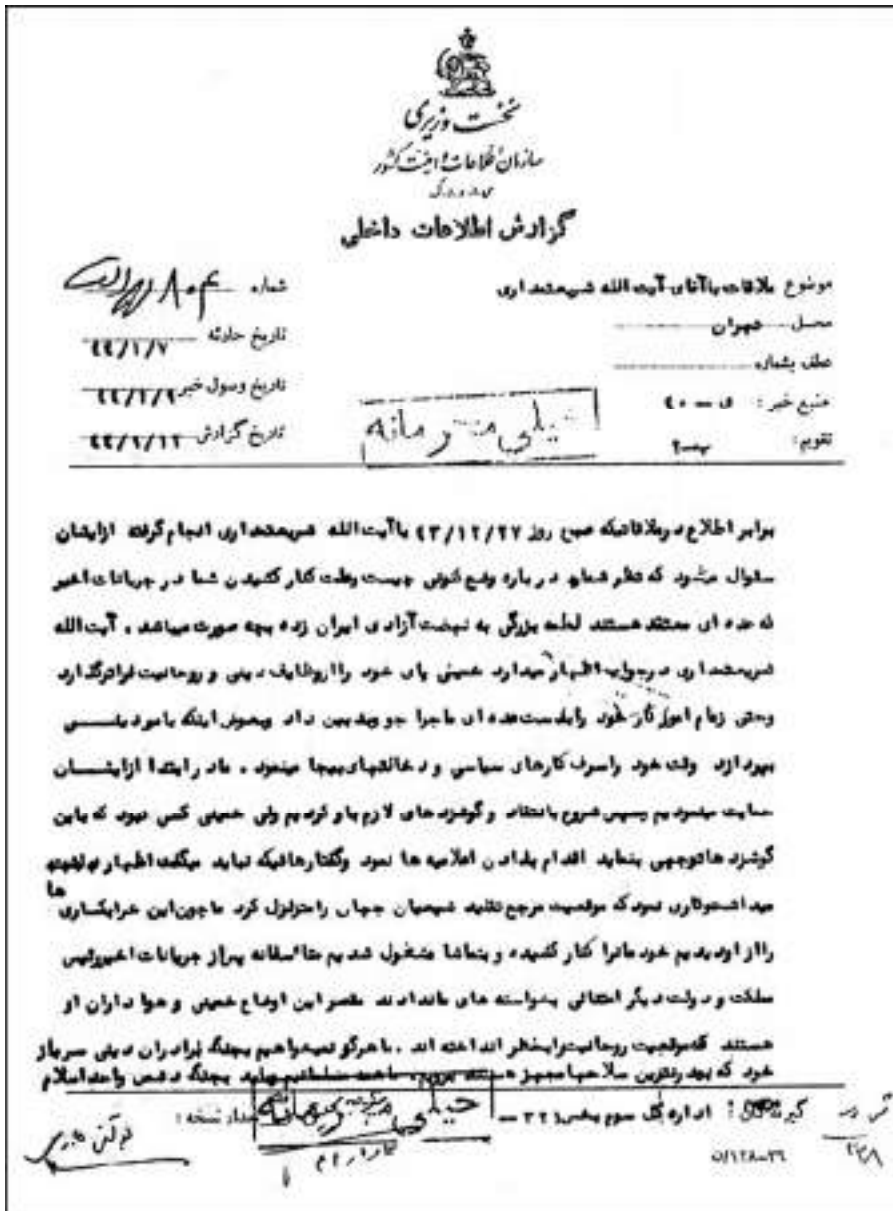 نخست وزیری
سازمان اطلاعات و امنیت کشور
گزارش اطلاعات داخلی
موضوع ملاقات با آقای آیت الله شریعتمداری
محل تهران
عطف بشماره
منبع خبر :
تقویم :
شماره
تاریخ حادثه ۴۴/۱/۷
تاریخ وصول خبر ۴۴/۲/۹
تاریخ گزارش ۴۴/۲/۱۲
خیلی محرمانه
برابر اطلاع در ملاقاتیکه صبح روز ۴۳/۱۲/۲۷ با آیت الله شریعتمداری انجام گرفته از ایشان
سئوال میشود که نظر شما در باره وضع کنونی چیست و علت کنار کشیدن شما در جریانات اخیر
که عده ای معتقد هستند لطمه بزرگی به نهضت آزادی ایران زده بچه صورت میباشد . آیت الله
شریعتمداری در جواب اظهار میدارد خمینی پای خود را از وظایف دینی و روحانیت فراتر گذارد
وحتی زمام امور کار خود را بدست عده ای ماجرا جو و بیدین داد وبعوض اینکه بامور دینی
بپردازد وقت خود را صرف کارهای سیاسی و دخالتهای بیجا مینمود . ما در ابتدا از ایشان
حمایت مینمودیم وسپس شروع بانتقاد و گوشزد های لازم باو کردیم ولی خمینی کسی نبود که باین
گوشزد ها توجهی بنماید اقدام بدادن اعلامیه ها نمود وگفتارهائیکه نباید میگفت اظهار
میداشت وکاری نمود که موقعیت مرجع تقلید شیعیان جهان را متزلزل کرد ما چون این خرابکاری ها
را از او دیدیم خودمانرا کنار کشیده و بتماشا مشغول شدیم متأسفانه پس از جریانات اخیر رئیس
مملکت و دولت دیگر اعتنائی بخواسته های ما ندادند مقصر این اوضاع خمینی و هواداران او
هستند که موقعیت روحانیت را بخطر انداخته اند . ما هرگز نمیخواهیم بجنگ برادران دینی سرباز
خود که بمدرنترین سلاحها مجهز هستند برویم . ما همه مسلمانیم بیائید بجنگ دشمن واحد اسلام
اداره کل سوم بخش ۳۲۱ — خیلی محرمانه تعداد نسخه :